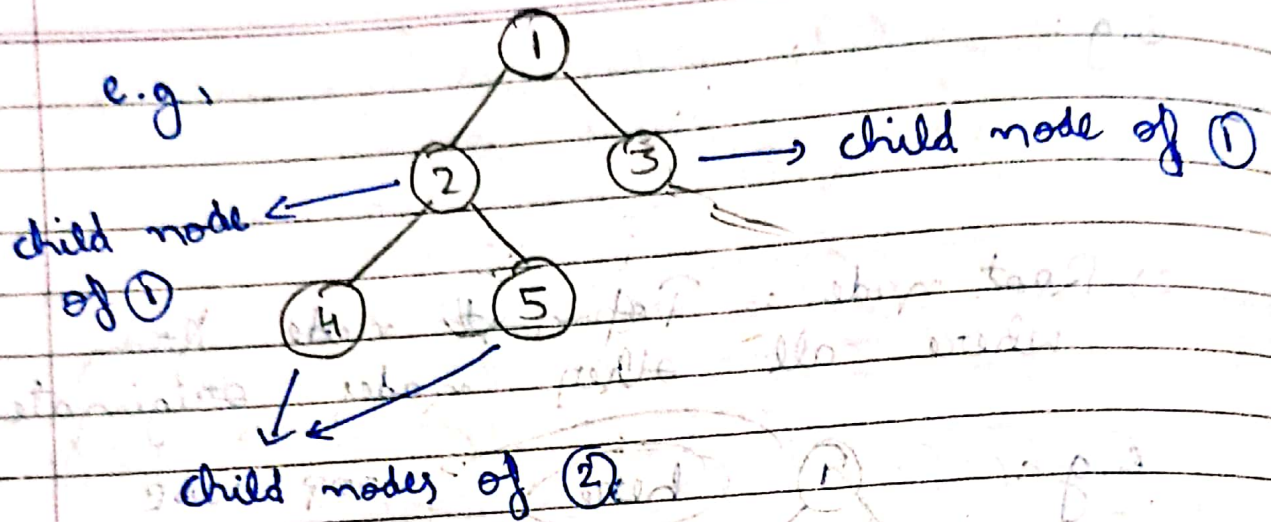 e.g,
①
② ③ → child node of ①
child node
of ①
④ ⑤
child nodes of ②